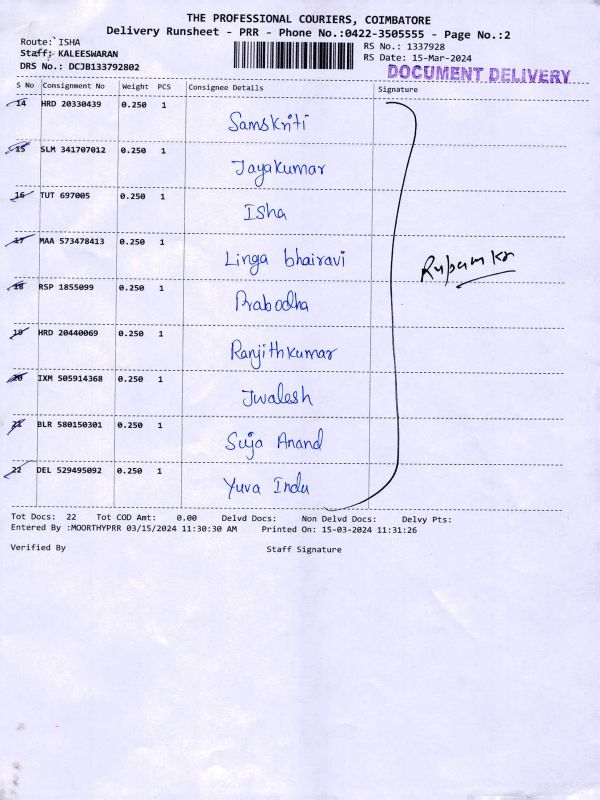 THE PROFESSIONAL COURIERS, COIMBATORE
Delivery Runsheet - PRR - Phone No.:0422-3505555 - Page No.:2
Route: ISHA
RS No.: 1337928
Staff: KALEESWARAN
RS Date: 15-Mar-2024
DRS No.: DCJB133792802
DOCUMENT DELIVERY
S No Consignment No Weight PCS Consignee Details Signature
14 HRD 20330439 0.250 1 Samskriti
15 SLM 341707012 0.250 1 Jayakumar
16 TUT 697005 0.250 1 Isha
17 MAA 573478413 0.250 1 Linga bhairavi
18 RSP 1855099 0.250 1 Prabodha
19 HRD 20440069 0.250 1 Ranjithkumar
20 IXM 505914368 0.250 1 Jwalesh
21 BLR 580150301 0.250 1 Suja Anand
22 DEL 529495092 0.250 1 Yuva Indu
Tot Docs: 22 Tot COD Amt: 0.00 Delvd Docs: Non Delvd Docs: Delvy Pts:
Entered By :MOORTHYPRR 03/15/2024 11:30:30 AM Printed On: 15-03-2024 11:31:26
Verified By Staff Signature